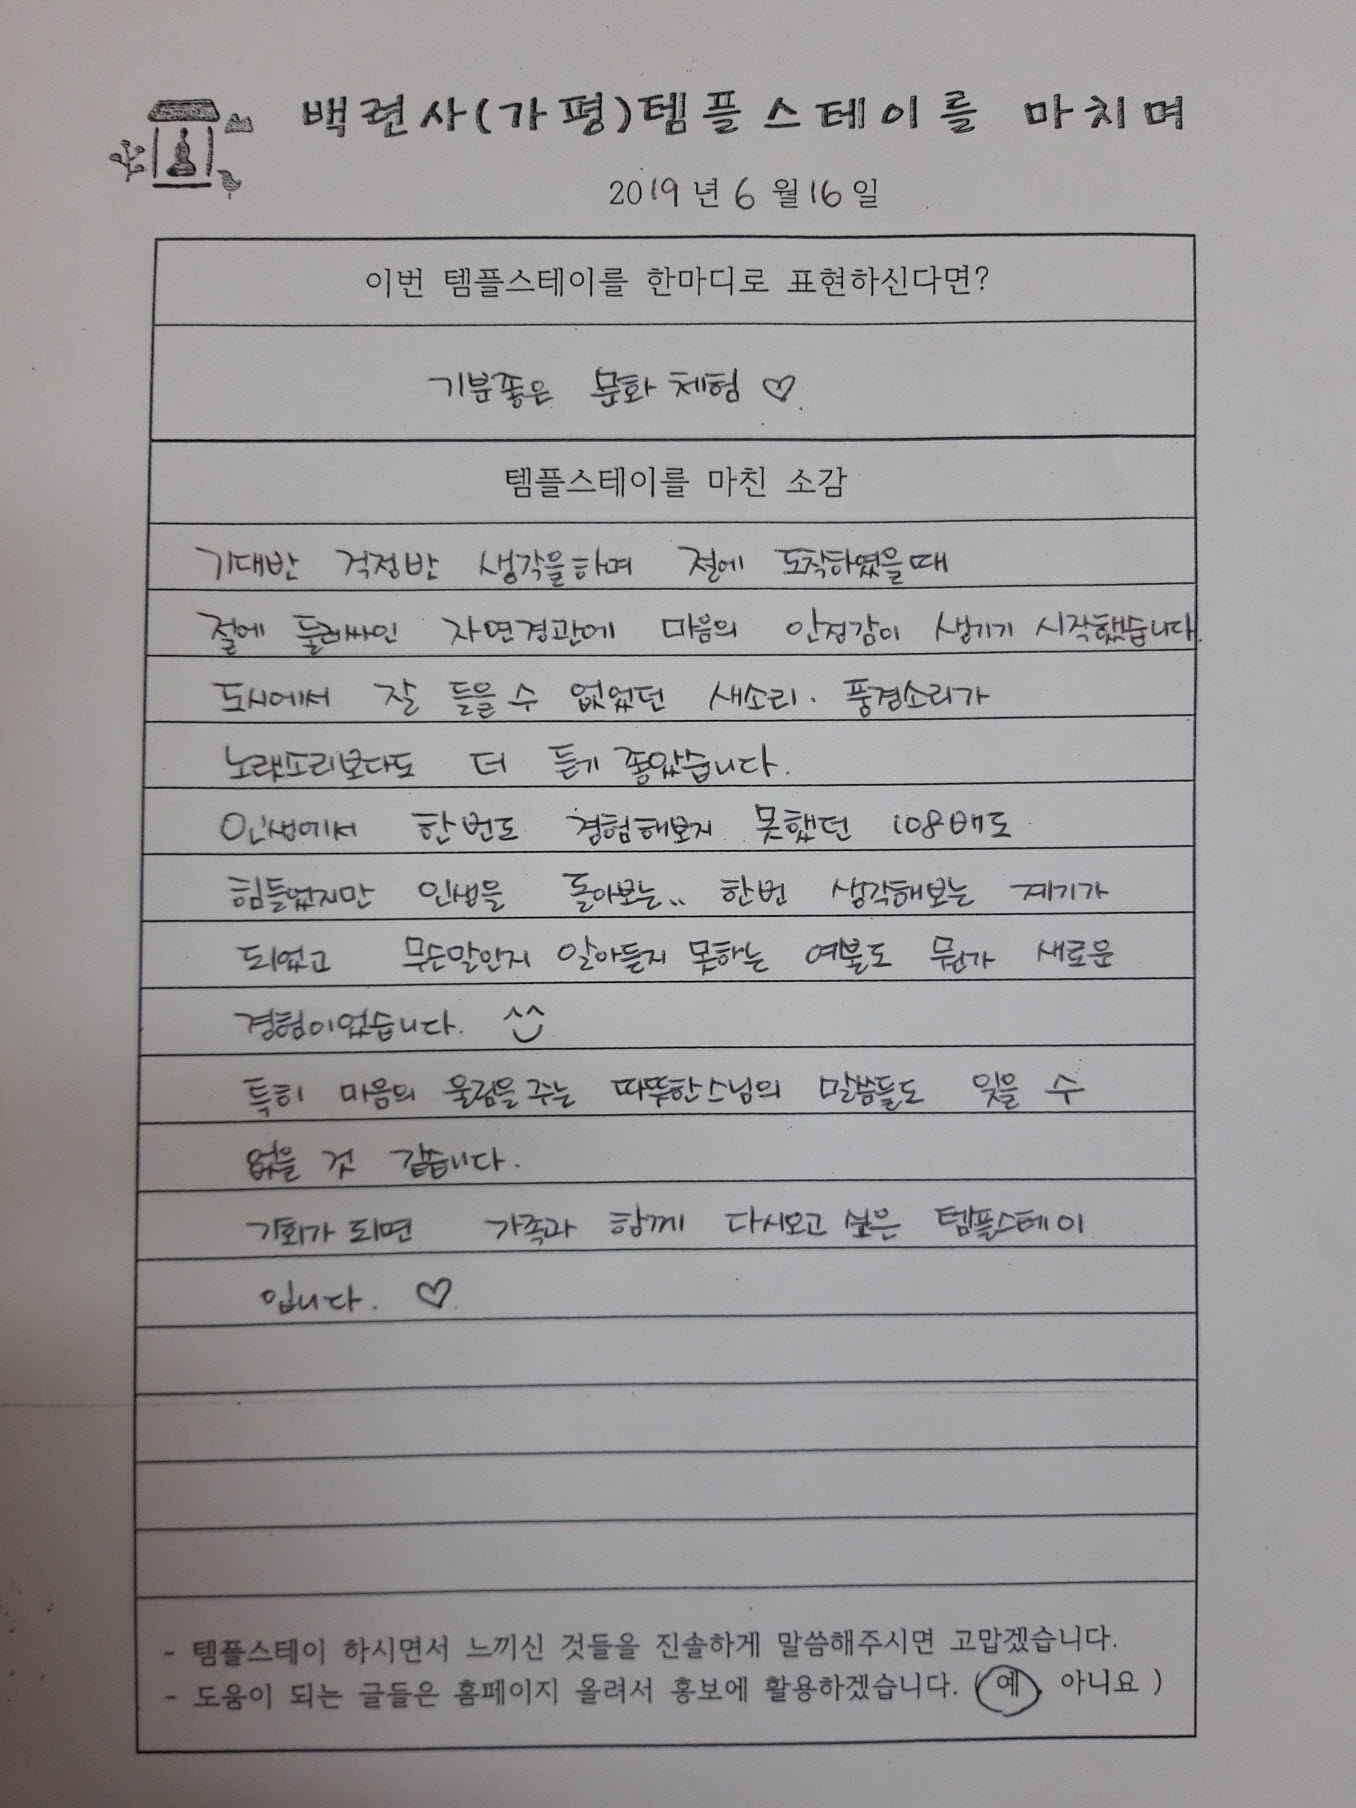 백련사(가평)템플스테이를 마치며
2019년 6월 16일
이번 템플스테이를 한마디로 표현하신다면?
기분좋은 문화 체험 ♡.
템플스테이를 마친 소감
기대반 걱정반 생각을하며 절에 도착하였을때
절에 둘러싸인 자연경관에 마음의 안정감이 생기기 시작했습니다.
도시에서 잘 들을 수 없었던 새소리. 풍경소리가
노랫소리보다도 더 듣기 좋았습니다.
인생에서 한번도 경험해보지 못했던 108배도
힘들었지만 인생을 돌아보는.. 한번 생각해보는 계기가
되었고 무슨말인지 알아듣지 못하는 예불도 뭔가 새로운
경험이었습니다. ^^
특히 마음의 울림을 주는 따뜻한스님의 말씀들도 잊을 수
없을 것 같습니다.
기회가 되면 가족과 함께 다시오고 싶은 템플스테이
입니다. ♡.
- 템플스테이 하시면서 느끼신 것들을 진솔하게 말씀해주시면 고맙겠습니다.
- 도움이 되는 글들은 홈페이지 올려서 홍보에 활용하겠습니다. (예, 아니요 )